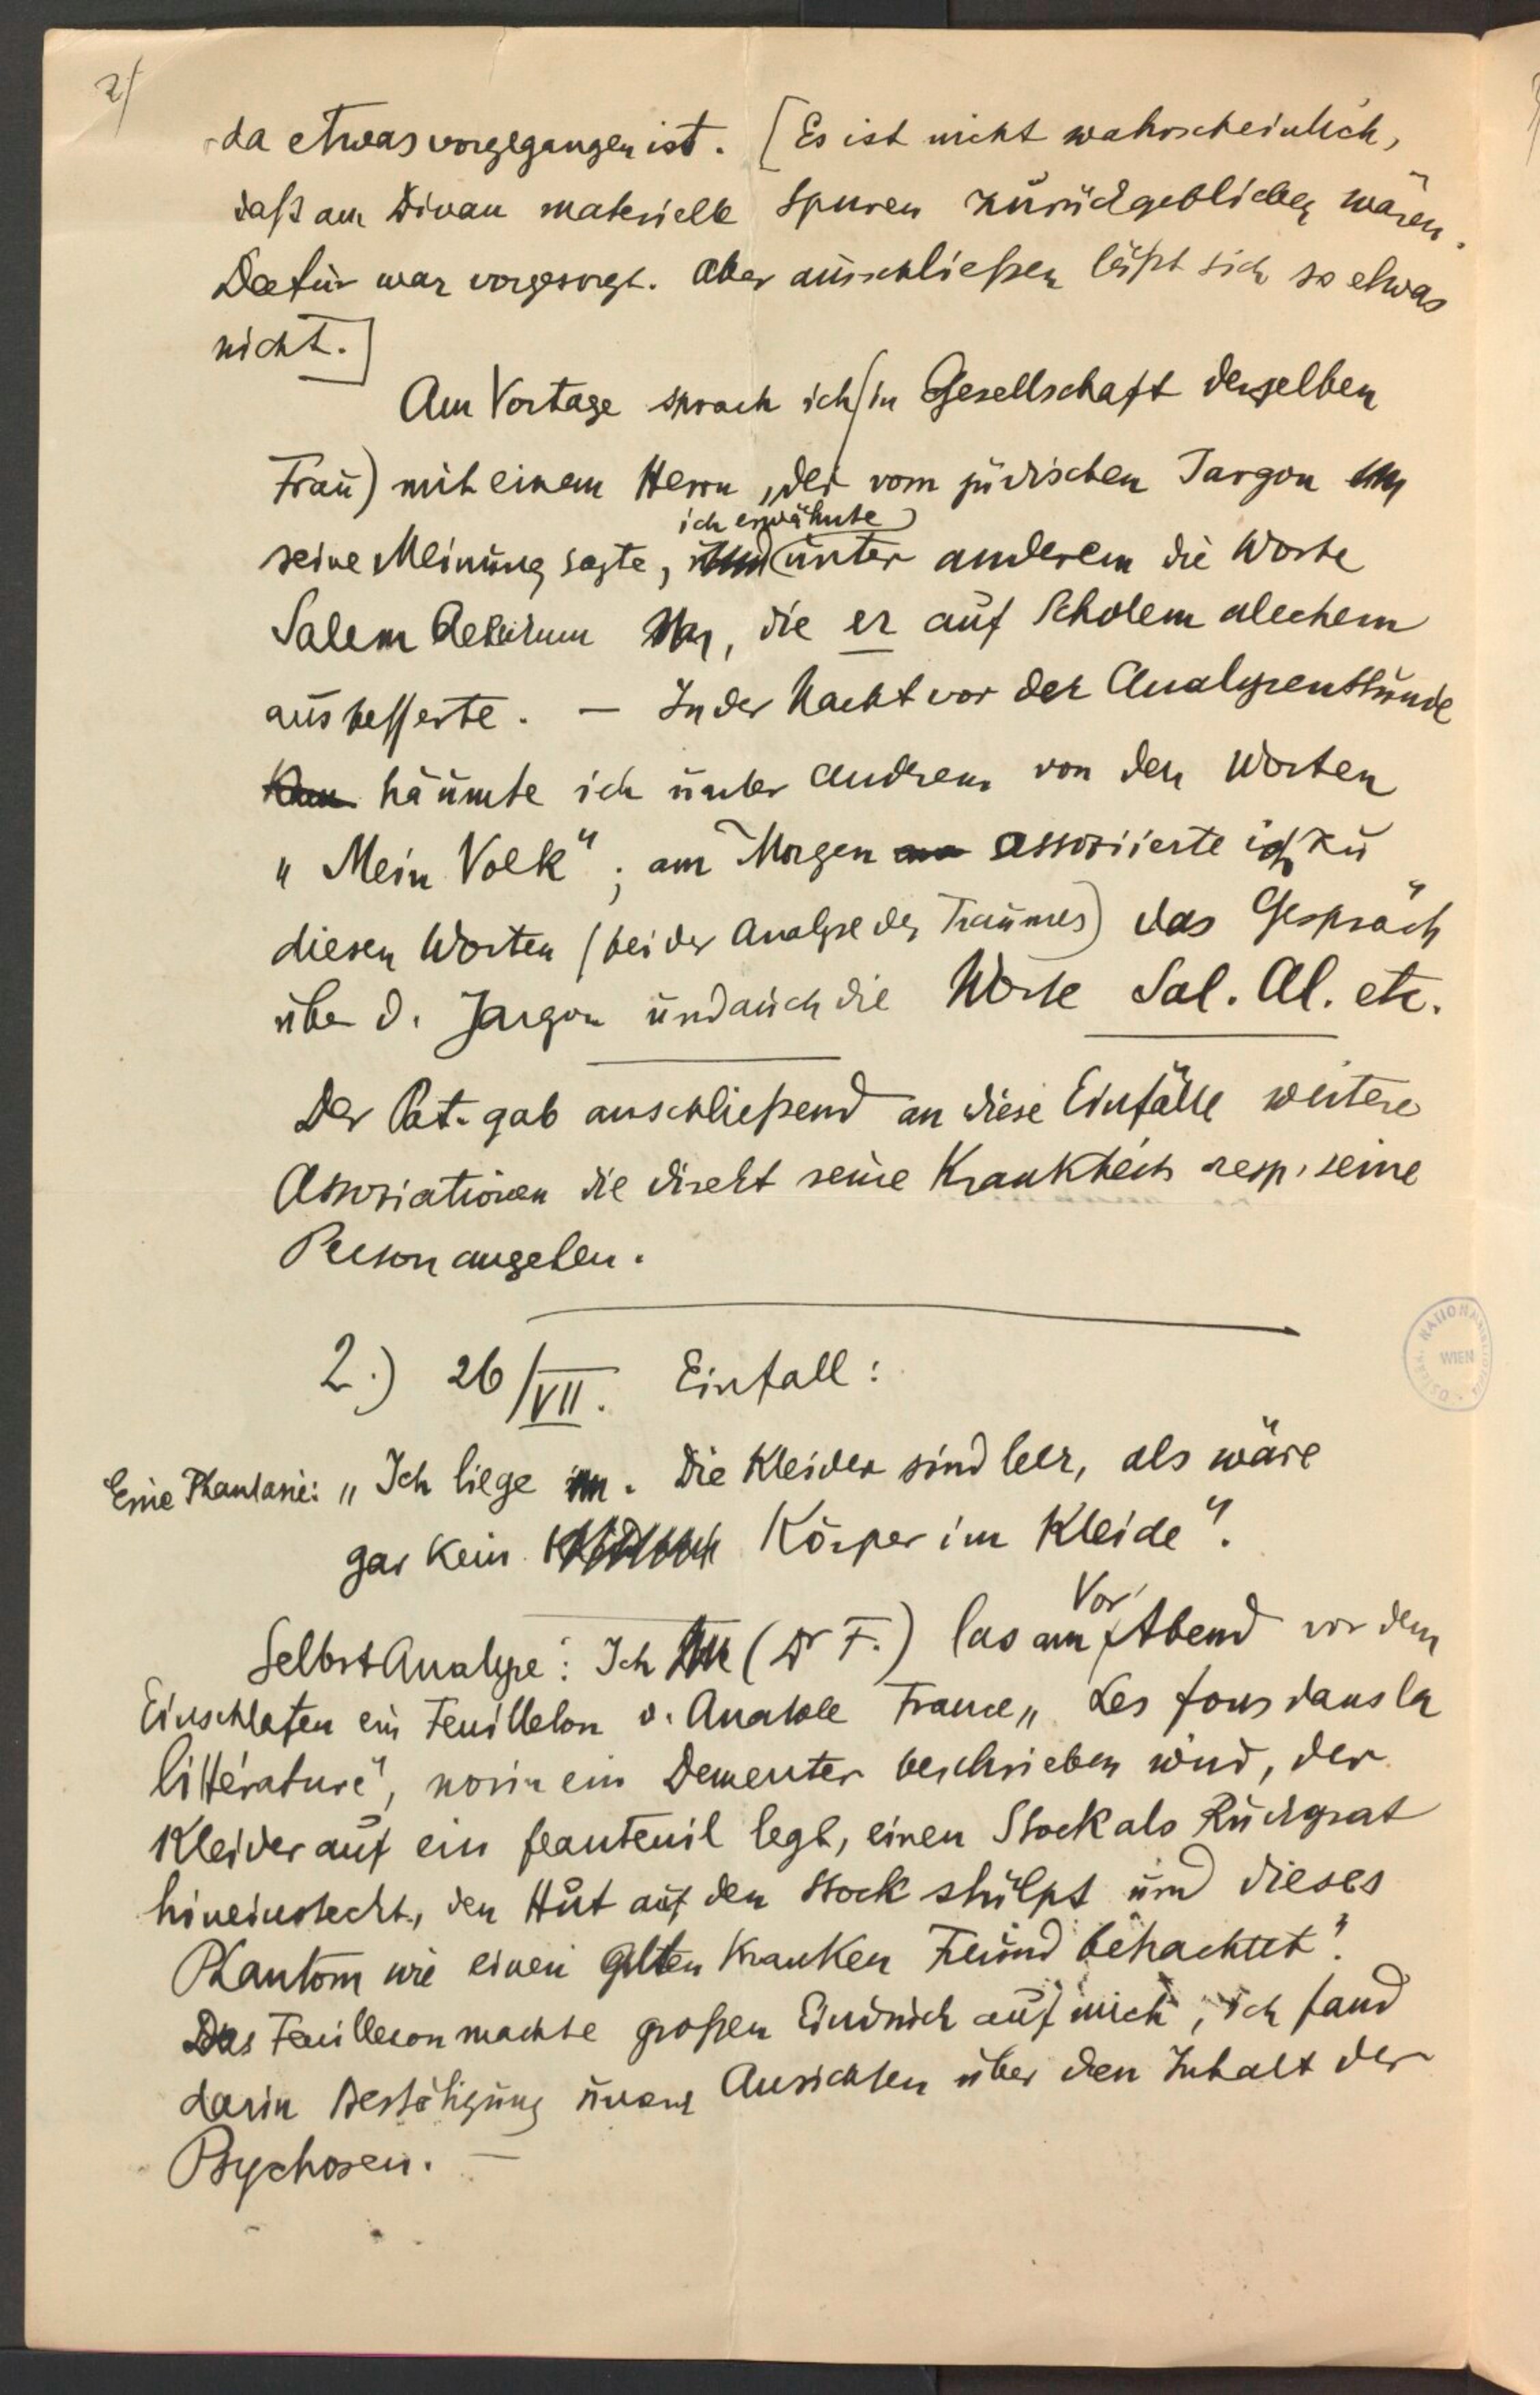 2/
da etwas vorgegangen ist. [Es ist nicht wahrscheinlich,
daß am Divan materielle Spuren zurückgeblieben wären.
Dafür war vorgesorgt. Aber ausschließen läßt sich so etwas
nicht.]
Am Vortage sprach ich (in Gesellschaft derselben
Frau) mit einem Herrn, der vom jüdischen Jargon
seine Meinung sagte, ich erwähnte unter anderem die Worte
Salem Aleikum, die er auf Scholem alechem
ausbesserte. – In der Nacht vor der Analysenstunde
träumte ich unter Andrem von den Worten
„Mein Volk“; am Morgen assoziierte ich zu
diesen Worten (bei der Analyse des Traumes) das Gespräch
über d. Jargon und auch die Worte Sal. Al. etc.
Der Pat. gab anschließend an diese Einfälle weitere
Assoziationen die direkt seine Krankheit resp. seine
Person angehen.
2.) 26/VII. Einfall:
Eine Phantasie: „Ich liege. Die Kleider sind leer, als wäre
gar kein Körper im Kleide“.
Selbstanalyse: Ich (Dr F.) las am VorAbend vor dem
Einschlafen ein Feuilleton v. Anatole France „Les fous dans la
littérature“, worin ein Dementer beschrieben wird, der
Kleider auf ein feauteuil legt, einen Stock als Rückgrat
hineinsteckt, den Hut auf den Stock stülpt und dieses
Phantom wie einen alten kranken Freund betrachtet“.
Das Feuilleton machte großen Eindruck auf mich, ich fand
darin Bestätigung unserer Ansichten über den Inhalt der
Psychosen. –
WIEN